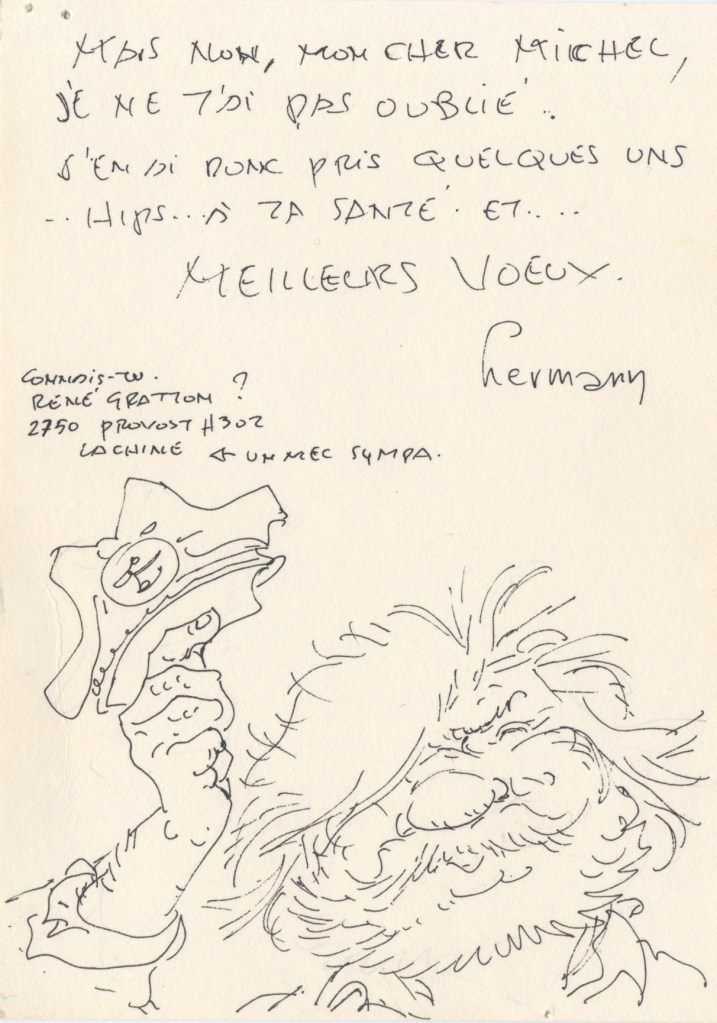 MAIS NON, MON CHER MICHEL,
JE NE T'AI PAS OUBLIÉ..
J'EN AI DONC PRIS QUELQUES UNS
... HIPS... À TA SANTÉ. ET....
MEILLEURS VOEUX.
hermann
CONNAIS-TU.
RENÉ GRATTON ?
2750 PROVOST #302
LACHINE ← UN MEC SYMPA.